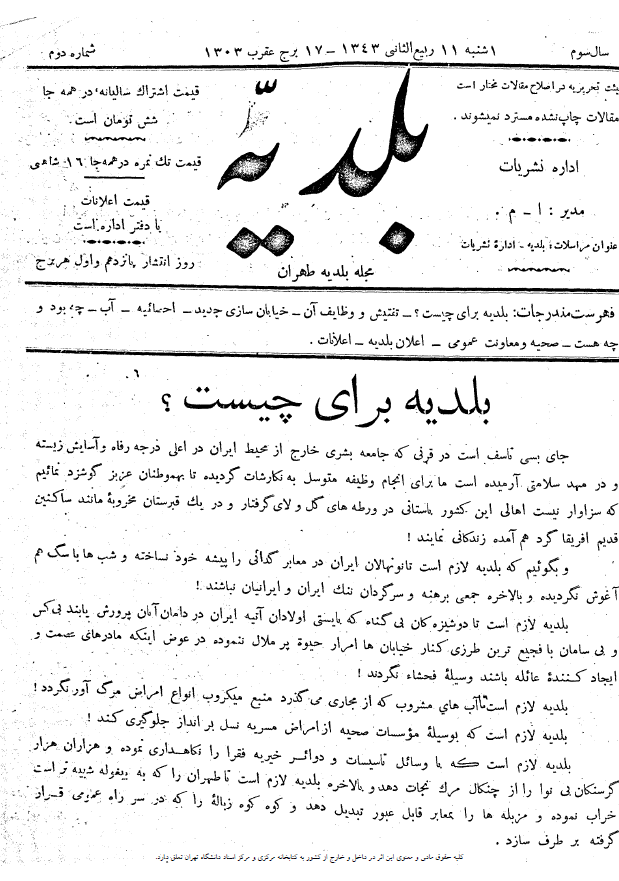 سال سوم
۱شنبه ۱۱ ربیع الثانی ۱۳۴۳ – ۱۷ برج عقرب ۱۳۰۳
شماره دوم
یئت تحریریه در اصلاح مقالات مختار است
مقالات چاپ نشده مسترد نمیشوند .
اداره نشریات
مدیر : ا – م .
عنوان مراسلات : بلدیه – ادارهٔ نشریات
بلدیّه
مجله بلدیه طهران
قیمت اشتراك سالیانه : در همه جا
شش تومان است .
قیمت تك نمره در همه جا ۱۶ شاهی
قیمت اعلانات
با دفتر اداره است
روز انتشار پانزدهم و اول هر برج
فهرست مندرجات: بلدیه برای چیست ؟ – تفتیش و وظایف آن – خیابان سازی جدید – احصائیه – آب – چه بود و
چه هست – صحیه و معاونت عمومی – اعلان بلدیه – اعلانات .
بلدیه برای چیست ؟
جای بسی تاسف است در قرنی که جامعه بشری خارج از محیط ایران در اعلی درجه رفاه و آسایش زیسته
و در مهد سلامتی آرمیده است ما برای انجام وظیفه متوسل به نگارشات گردیده تا بهموطنان عزیز گوشزد نمائیم
که سزاوار نیست اهالی این کشور باستانی در ورطه های گل و لای گرفتار و در یك قبرستان مخروبهٔ مانند ساکنین
قدیم افریقا گرد هم آمده زندگانی نمایند !
و بگوئیم که بلدیه لازم است تا نونهالان ایران در معابر گدائی را پیشه خود نساخته و شب ها با سگ هم
آغوش نگردیده و بالاخره جمعی برهنه و سرگردان ننك ایران و ایرانیان نباشند !
بلدیه لازم است تا دوشیزه‌گان بی گناه که بایستی اولادان آتیه ایران در دامان آنان پرورش یابند بی کس
و بی سامان با فجیع ترین طرزی کنار خیابان ها امرار حیوة پر ملال ننموده در عوض اینکه مادرهای عصمت و
ایجاد کنندهٔ عائله باشند وسیلهٔ فحشاء نگردند !
بلدیه لازم است تا آب های مشروب که از مجاری می گذرد منبع میکروب انواع امراض مرگ آور نگردد !
بلدیه لازم است که بوسیلهٔ مؤسسات صحیه از امراض مسریه نسل بر انداز جلوگیری کند !
بلدیه لازم است که با وسائل تاسیسات و دوائر خیریه فقرا را نگاهداری نموده و هزاران هزار
گرسنگان بی نوا را از چنگال مرك نجات دهد و بالاخره بلدیه لازم است تا طهران را که به بیغوله شبیه تر است
خراب نموده و مزبله ها را بمعابر قابل عبور تبدیل دهد و کوه کوه زبالهٔ را که در سر راه عمومی قرار
گرفته بر طرف سازد .
کلیه حقوق مادی و معنوی این اثر در داخل و خارج از کشور به کتابخانه مرکزی و مرکز اسناد دانشگاه تهران تعلق دارد.